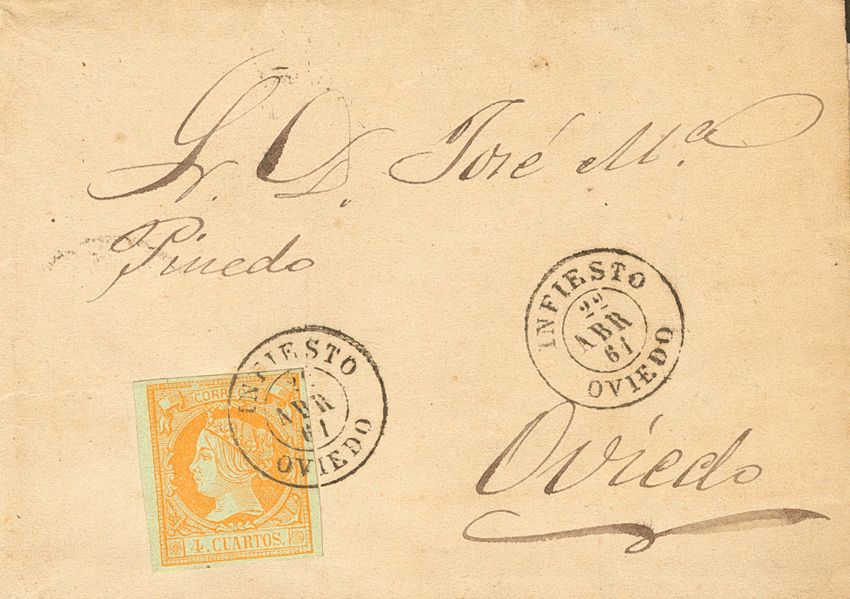 S. D. José Mª
Pinedo
INFIESTO
22
ABR
61
OVIEDO
INFIESTO
22
ABR
61
OVIEDO
CORR
4 CUARTOS.
Oviedo